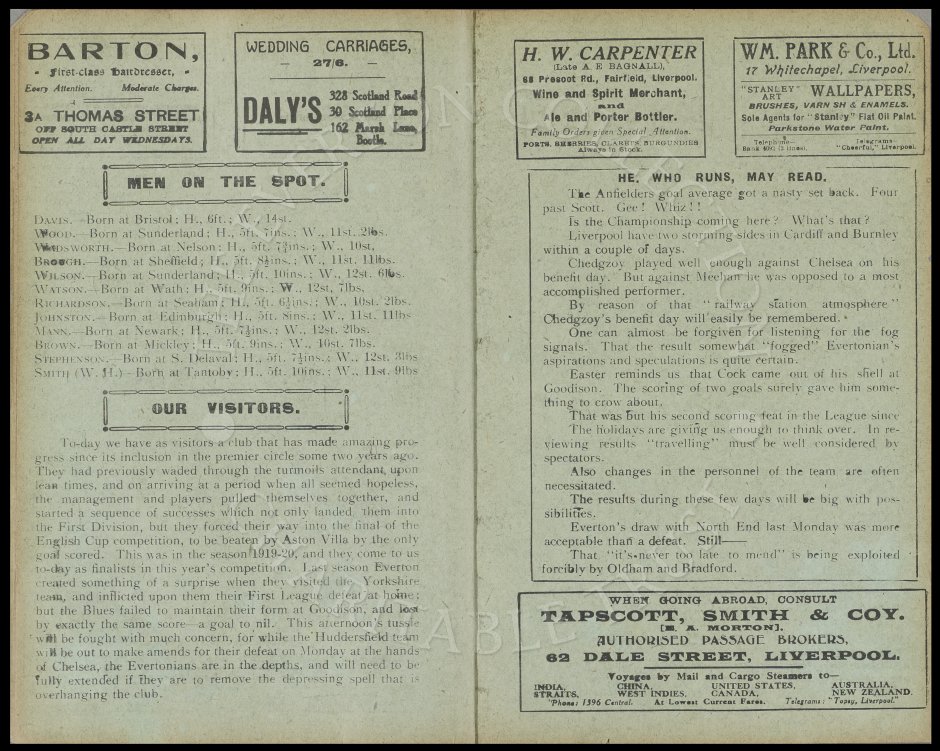 BARTON,
First-class Hairdresser,
Every Attention. Moderate Charges.
3A THOMAS STREET
OFF SOUTH CASTLE STREET
OPEN ALL DAY WEDNESDAYS.
WEDDING CARRIAGES,
— 27/6. —
DALY'S
328 Scotland Road
30 Scotland Place
162 Marsh Lane,
Bootle.
MEN ON THE SPOT.
DAVIS.—Born at Bristol; H., 6ft.; W., 14st.
WOOD.—Born at Sunderland; H., 5ft. 7ins.; W., 11st. 2lbs.
WADSWORTH.—Born at Nelson; H., 5ft. 7½ins.; W., 10st,
BROUGH.—Born at Sheffield; H., 5ft. 8½ins.; W., 11st, 11lbs.
WILSON.—Born at Sunderland; H., 5ft. 10ins.; W., 12st. 6lbs.
WATSON.—Born at Wath; H., 5ft. 9ins.; W., 12st, 7lbs.
RICHARDSON.—Born at Seaham; H., 5ft. 6½ins.; W., 10st. 2lbs.
JOHNSTON.—Born at Edinburgh; H., 5ft. 8ins.; W., 11st. 11lbs
MANN.—Born at Newark; H., 5ft. 7½ins.; W., 12st. 2lbs.
BROWN.—Born at Mickley; H., 5ft. 9ins.; W., 10st. 7lbs.
STEPHENSON.—Born at S. Delaval; H., 5ft. 7½ins.; W., 12st. 3lbs
SMITH (W. H.)—Born at Tantoby; H., 5ft. 10ins.; W., 11st. 9lbs
OUR VISITORS.
To-day we have as visitors a club that has made amazing pro-
gress since its inclusion in the premier circle some two years ago.
They had previously waded through the turmoils attendant upon
lean times, and on arriving at a period when all seemed hopeless,
the management and players pulled themselves together, and
started a sequence of successes which not only landed them into
the First Division, but they forced their way into the final of the
English Cup competition, to be beaten by Aston Villa by the only
goal scored. This was in the season 1919-20, and they come to us
to-day as finalists in this year's competition. Last season Everton
created something of a surprise when they visited the Yorkshire
team, and inflicted upon them their First League defeat at home;
but the Blues failed to maintain their form at Goodison, and lost
by exactly the same score—a goal to nil. This afternoon's tussle
will be fought with much concern, for while the Huddersfield team
will be out to make amends for their defeat on Monday at the hands
of Chelsea, the Evertonians are in the depths, and will need to be
fully extended if they are to remove the depressing spell that is
overhanging the club.
H. W. CARPENTER
(Late A. E BAGNALL),
68 Prescot Rd., Fairfield, Liverpool.
Wine and Spirit Merchant,
and
Ale and Porter Bottler.
Family Orders given Special Attention.
PORTS, SHERRIES, CLARETS, BURGUNDIES
Always in Stock.
WM. PARK & Co., Ltd.
17 Whitechapel, Liverpool.
"STANLEY" ART WALLPAPERS,
BRUSHES, VARNISH & ENAMELS.
Sole Agents for "Stanley" Flat Oil Paint.
Parkstone Water Paint.
Telephone— Telegrams—
Bank (2 lines). "Cheerful," Liverpool.
HE, WHO RUNS, MAY READ.
The Anfielders goal average got a nasty set back. Four
past Scott. Gee! Whiz!!
Is the Championship coming here? What's that?
Liverpool have two storming sides in Cardiff and Burnley
within a couple of days.
Chedgzoy played well enough against Chelsea on his
benefit day. But against Meehan he was opposed to a most
accomplished performer.
By reason of that "railway station atmosphere"
Chedgzoy's benefit day will easily be remembered.
One can almost be forgiven for listening for the fog
signals. That the result somewhat "fogged" Evertonian's
aspirations and speculations is quite certain.
Easter reminds us that Cock came out of his shell at
Goodison. The scoring of two goals surely gave him some-
thing to crow about.
That was but his second scoring feat in the League since
The holidays are giving us enough to think over. In re-
viewing results "travelling" must be well considered by
spectators.
Also changes in the personnel of the team are often
necessitated.
The results during these few days will be big with pos-
sibilities.
Everton's draw with North End last Monday was more
acceptable than a defeat. Still——
That "it's never too late to mend" is being exploited
forcibly by Oldham and Bradford.
WHEN GOING ABROAD, CONSULT
TAPSCOTT, SMITH & COY.
[E. A. MORTON].
AUTHORISED PASSAGE BROKERS,
62 DALE STREET, LIVERPOOL.
Voyages by Mail and Cargo Steamers to—
INDIA, CHINA, UNITED STATES, AUSTRALIA,
STRAITS. WEST INDIES, CANADA, NEW ZEALAND.
'Phone: 1396 Central. At Lowest Current Fares. Telegrams: "Topsy, Liverpool."